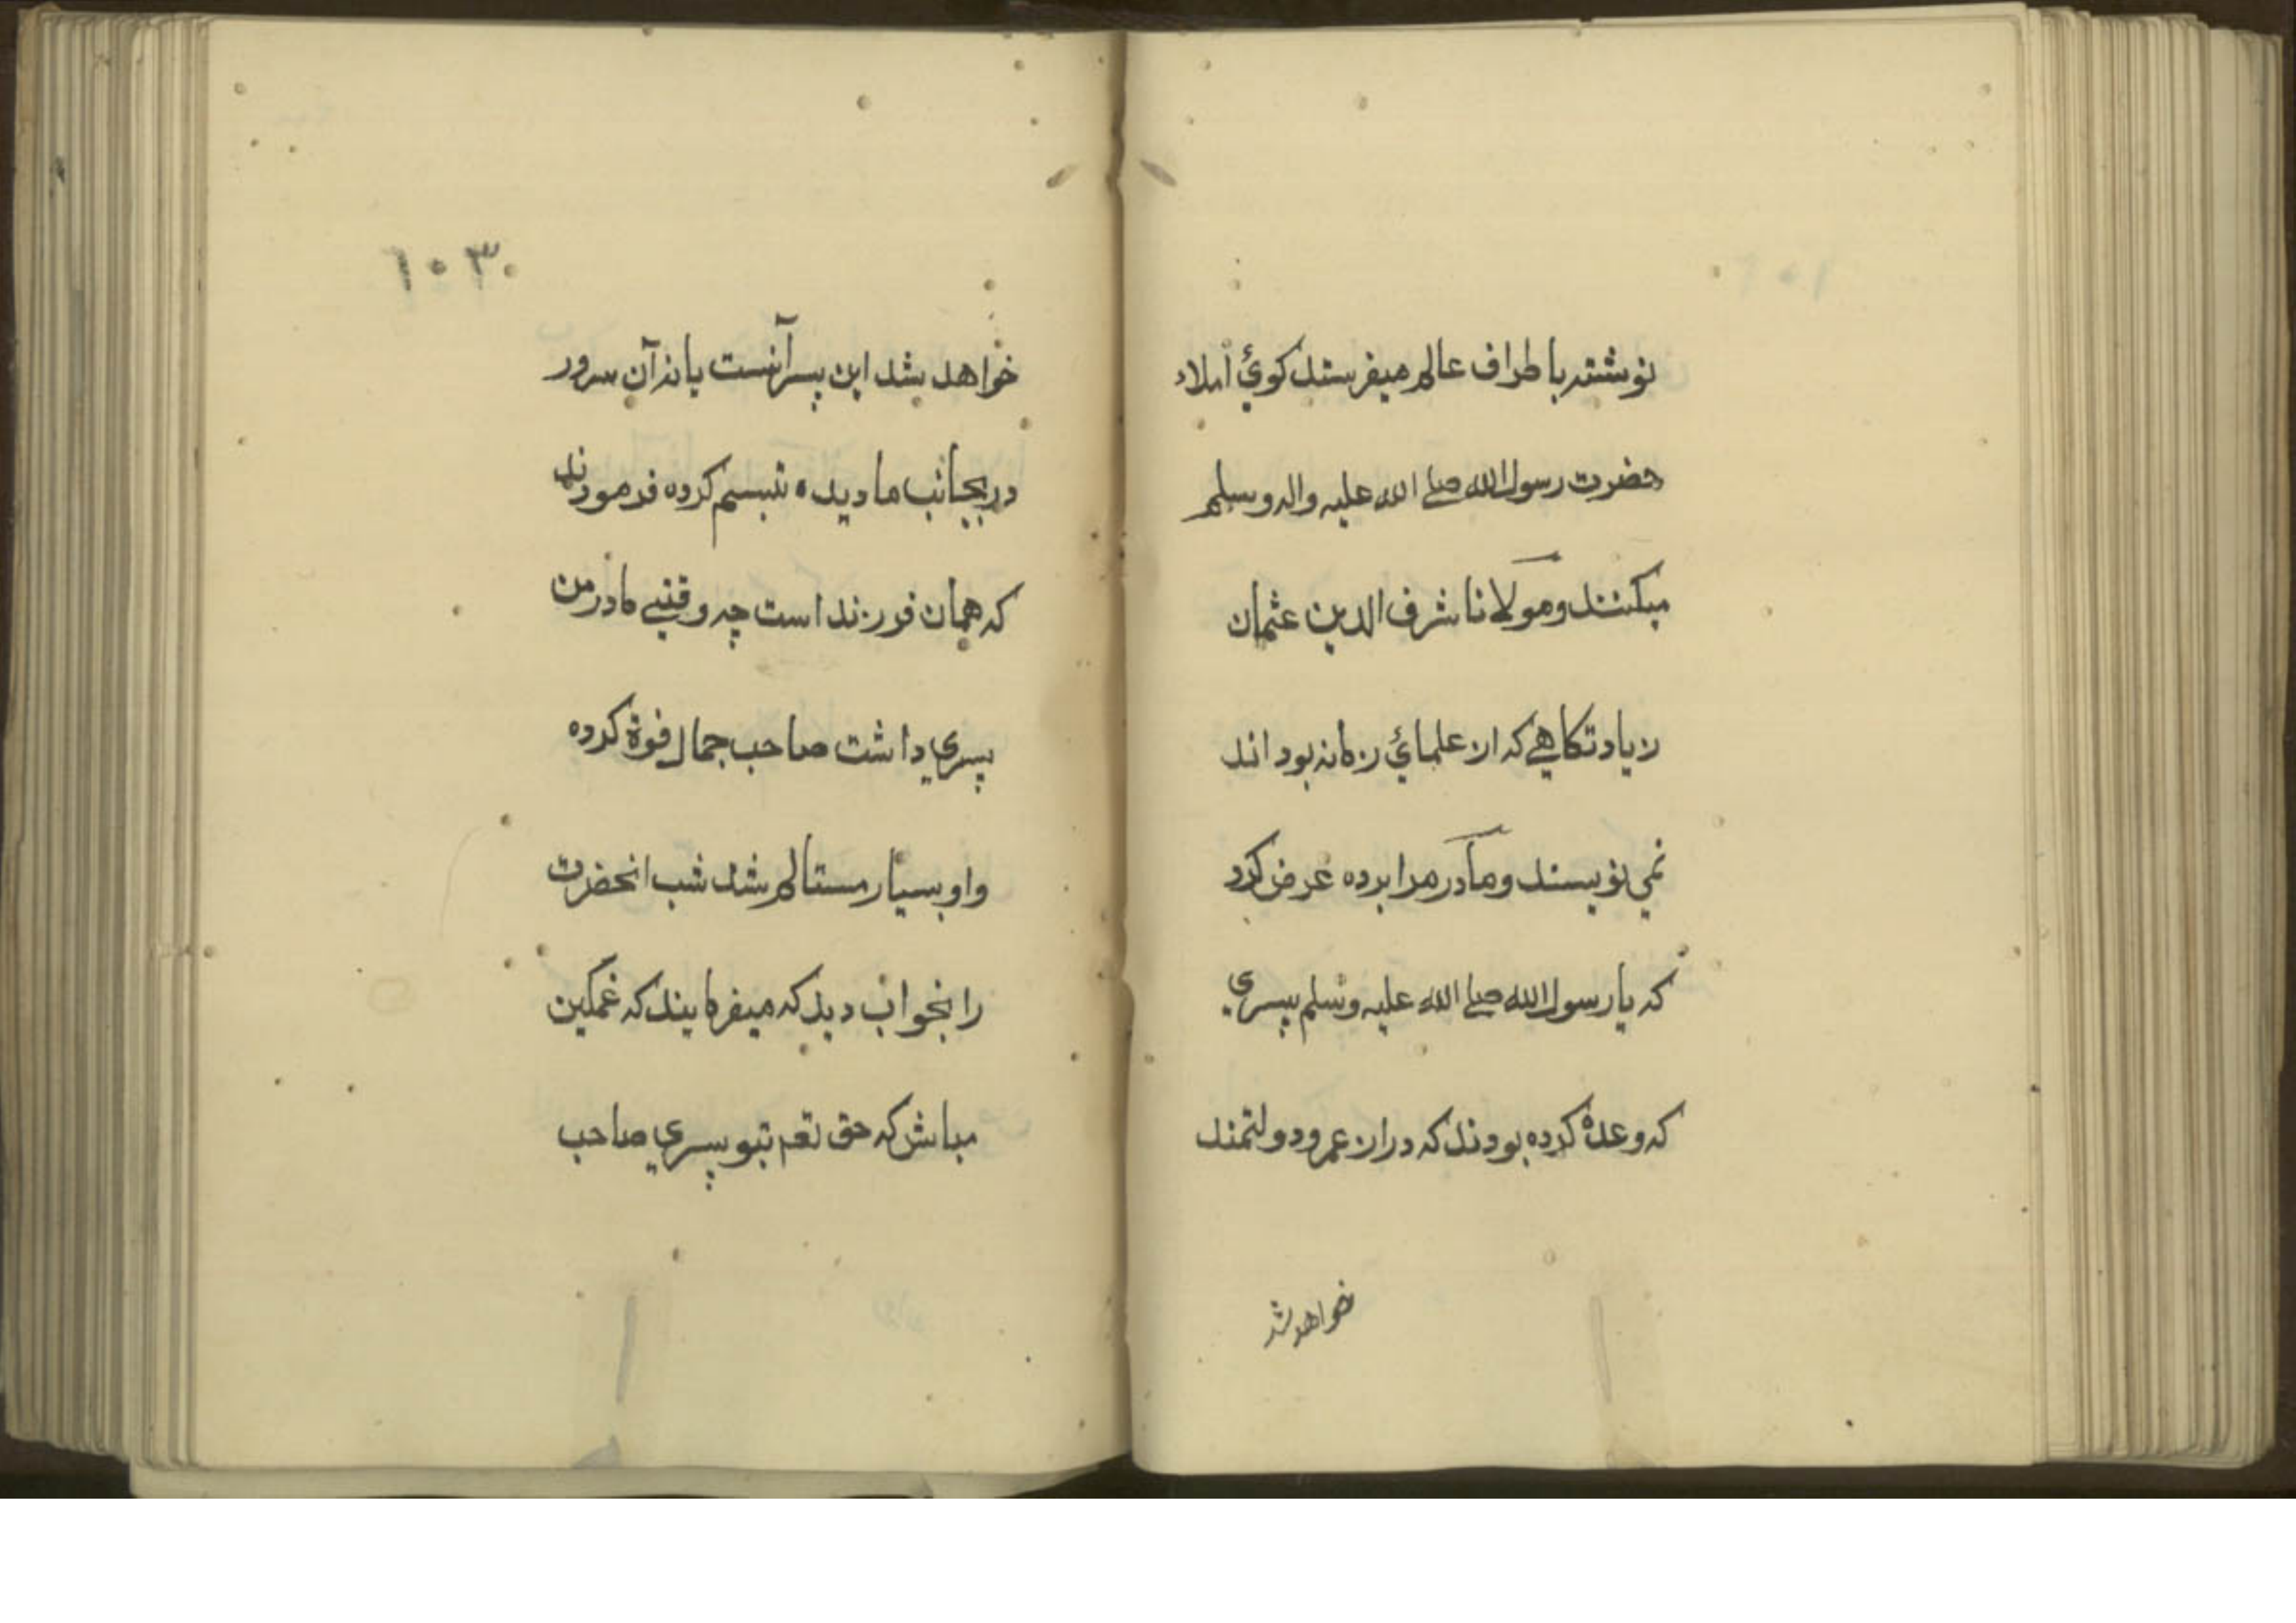 نوشته باطراف عالم میفرستد کوئي املاء
حضرت رسول الله صلے الله علیه واله وسلم
میکنند ومولانا شرف الدین عثمان
زیادتکاهي که از علمائي زمانه بود اند
نمي نویسند ومادر مرا برده عرض کرد
که یا رسول الله صلے الله علیه وسلم پسري
که وعدۀ کرده بودند که دراز عمر ودولتمند
خواهد شد
۱۰۳
خواهد شد این پسر آنست یا نه آن سرور
در بجانب ما دیده تبسم کرده فرمودند
که همان فورزند است چه وقتیے مادر من
پسري داشت صاحب جمال فوة کرده
واو بسیار مستالم شد شب انحضرت
را بخواب دید که میفرمایند که غمکین
مباش که حق تعم بتو پسري صاحب